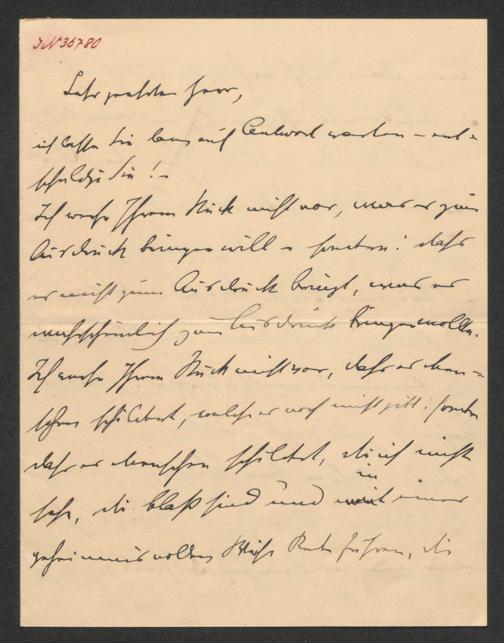 JN 36780
Sehr geehrter Herr,
ich lasse Sie lang auf Antwort warten – ent-
schuldigen Sie! –
Ich werfe Ihrem Stück nicht vor, was es zum
Ausdruck bringen will – sondern: daß
es nicht zum Ausdruck bringt, was es
wahrscheinlich zum Ausdruck bringen wollte.
Ich werfe Ihrem Stück nicht vor, daß es Men-
schen schildert, welche es noch nicht gibt: sondern
daß es Menschen schildert, die ich nicht
sehe, die blaß sind und in einer
geheimnisvollen Weise Rede führen, die